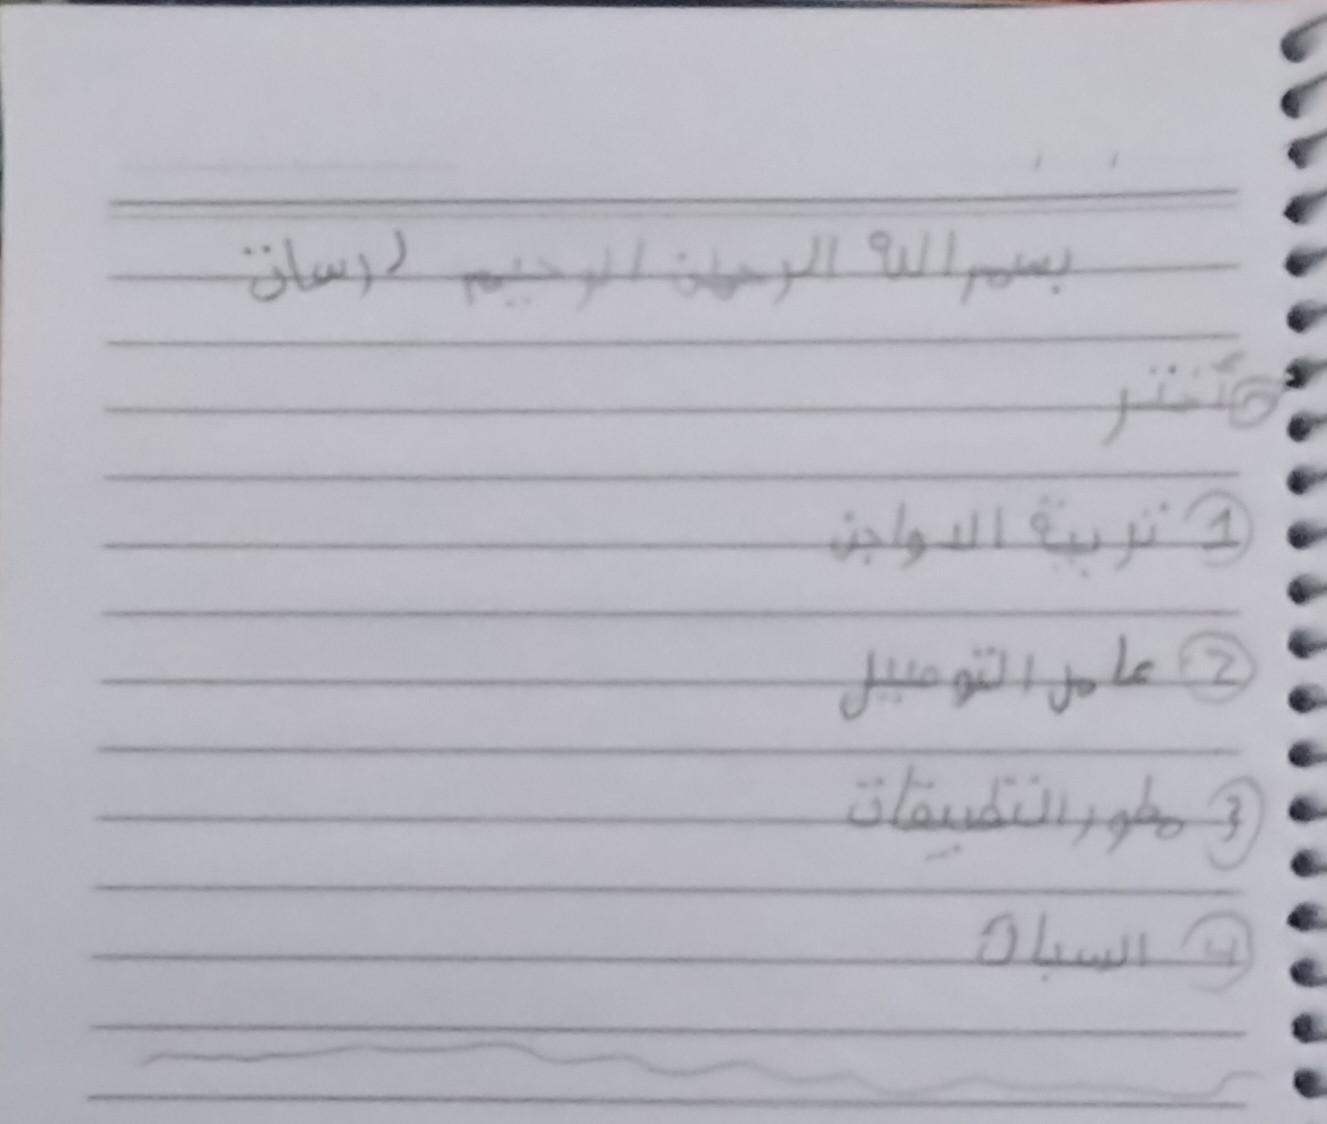 بسم الله الرحمن الرحيم دراسات
أختر
① تربية الدواجن
② عامل التوصيل
③ مطور التطبيقات
④ السباك